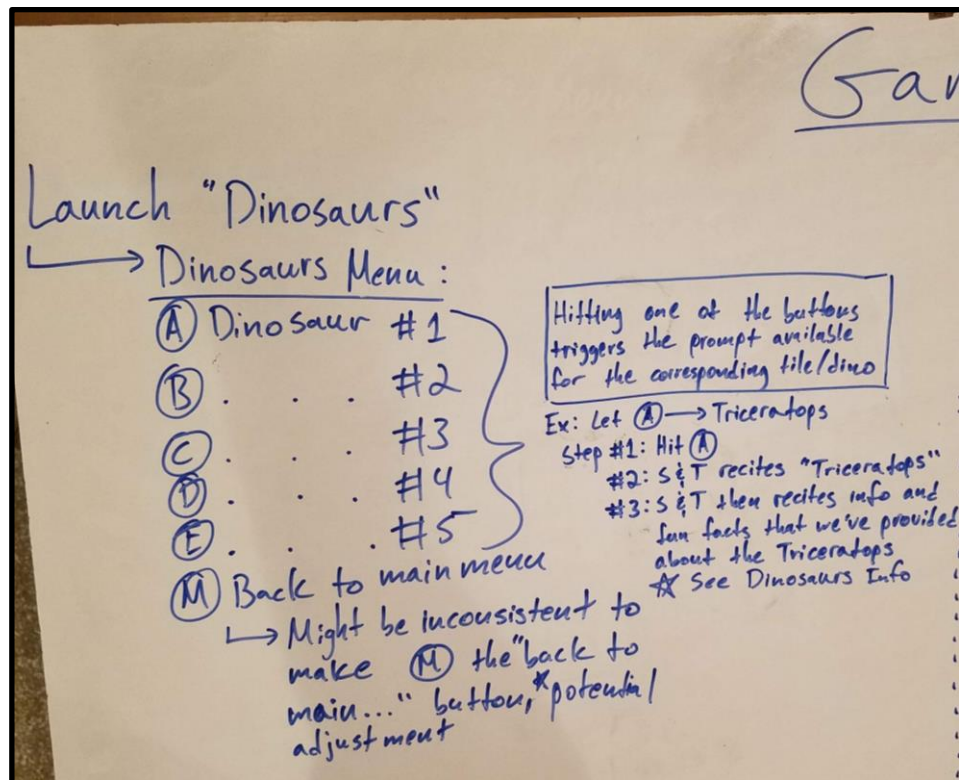 Gar
Launch "Dinosaurs"
→ Dinosaurs Menu:
(A) Dinosaur #1
(B) . . . #2
(C) . . . #3
(D) . . . #4
(E) . . . #5
(M) Back to main menu
↳ Might be inconsistent to
make (M) the "back to
main..." button, *potential
adjustment
Hitting one of the buttons
triggers the prompt available
for the corresponding tile/dino
Ex: Let (A) → Triceratops
Step #1: Hit (A)
#2: S&T recites "Triceratops"
#3: S&T then recites info and
fun facts that we've provided
about the Triceratops
☆ See Dinosaurs Info